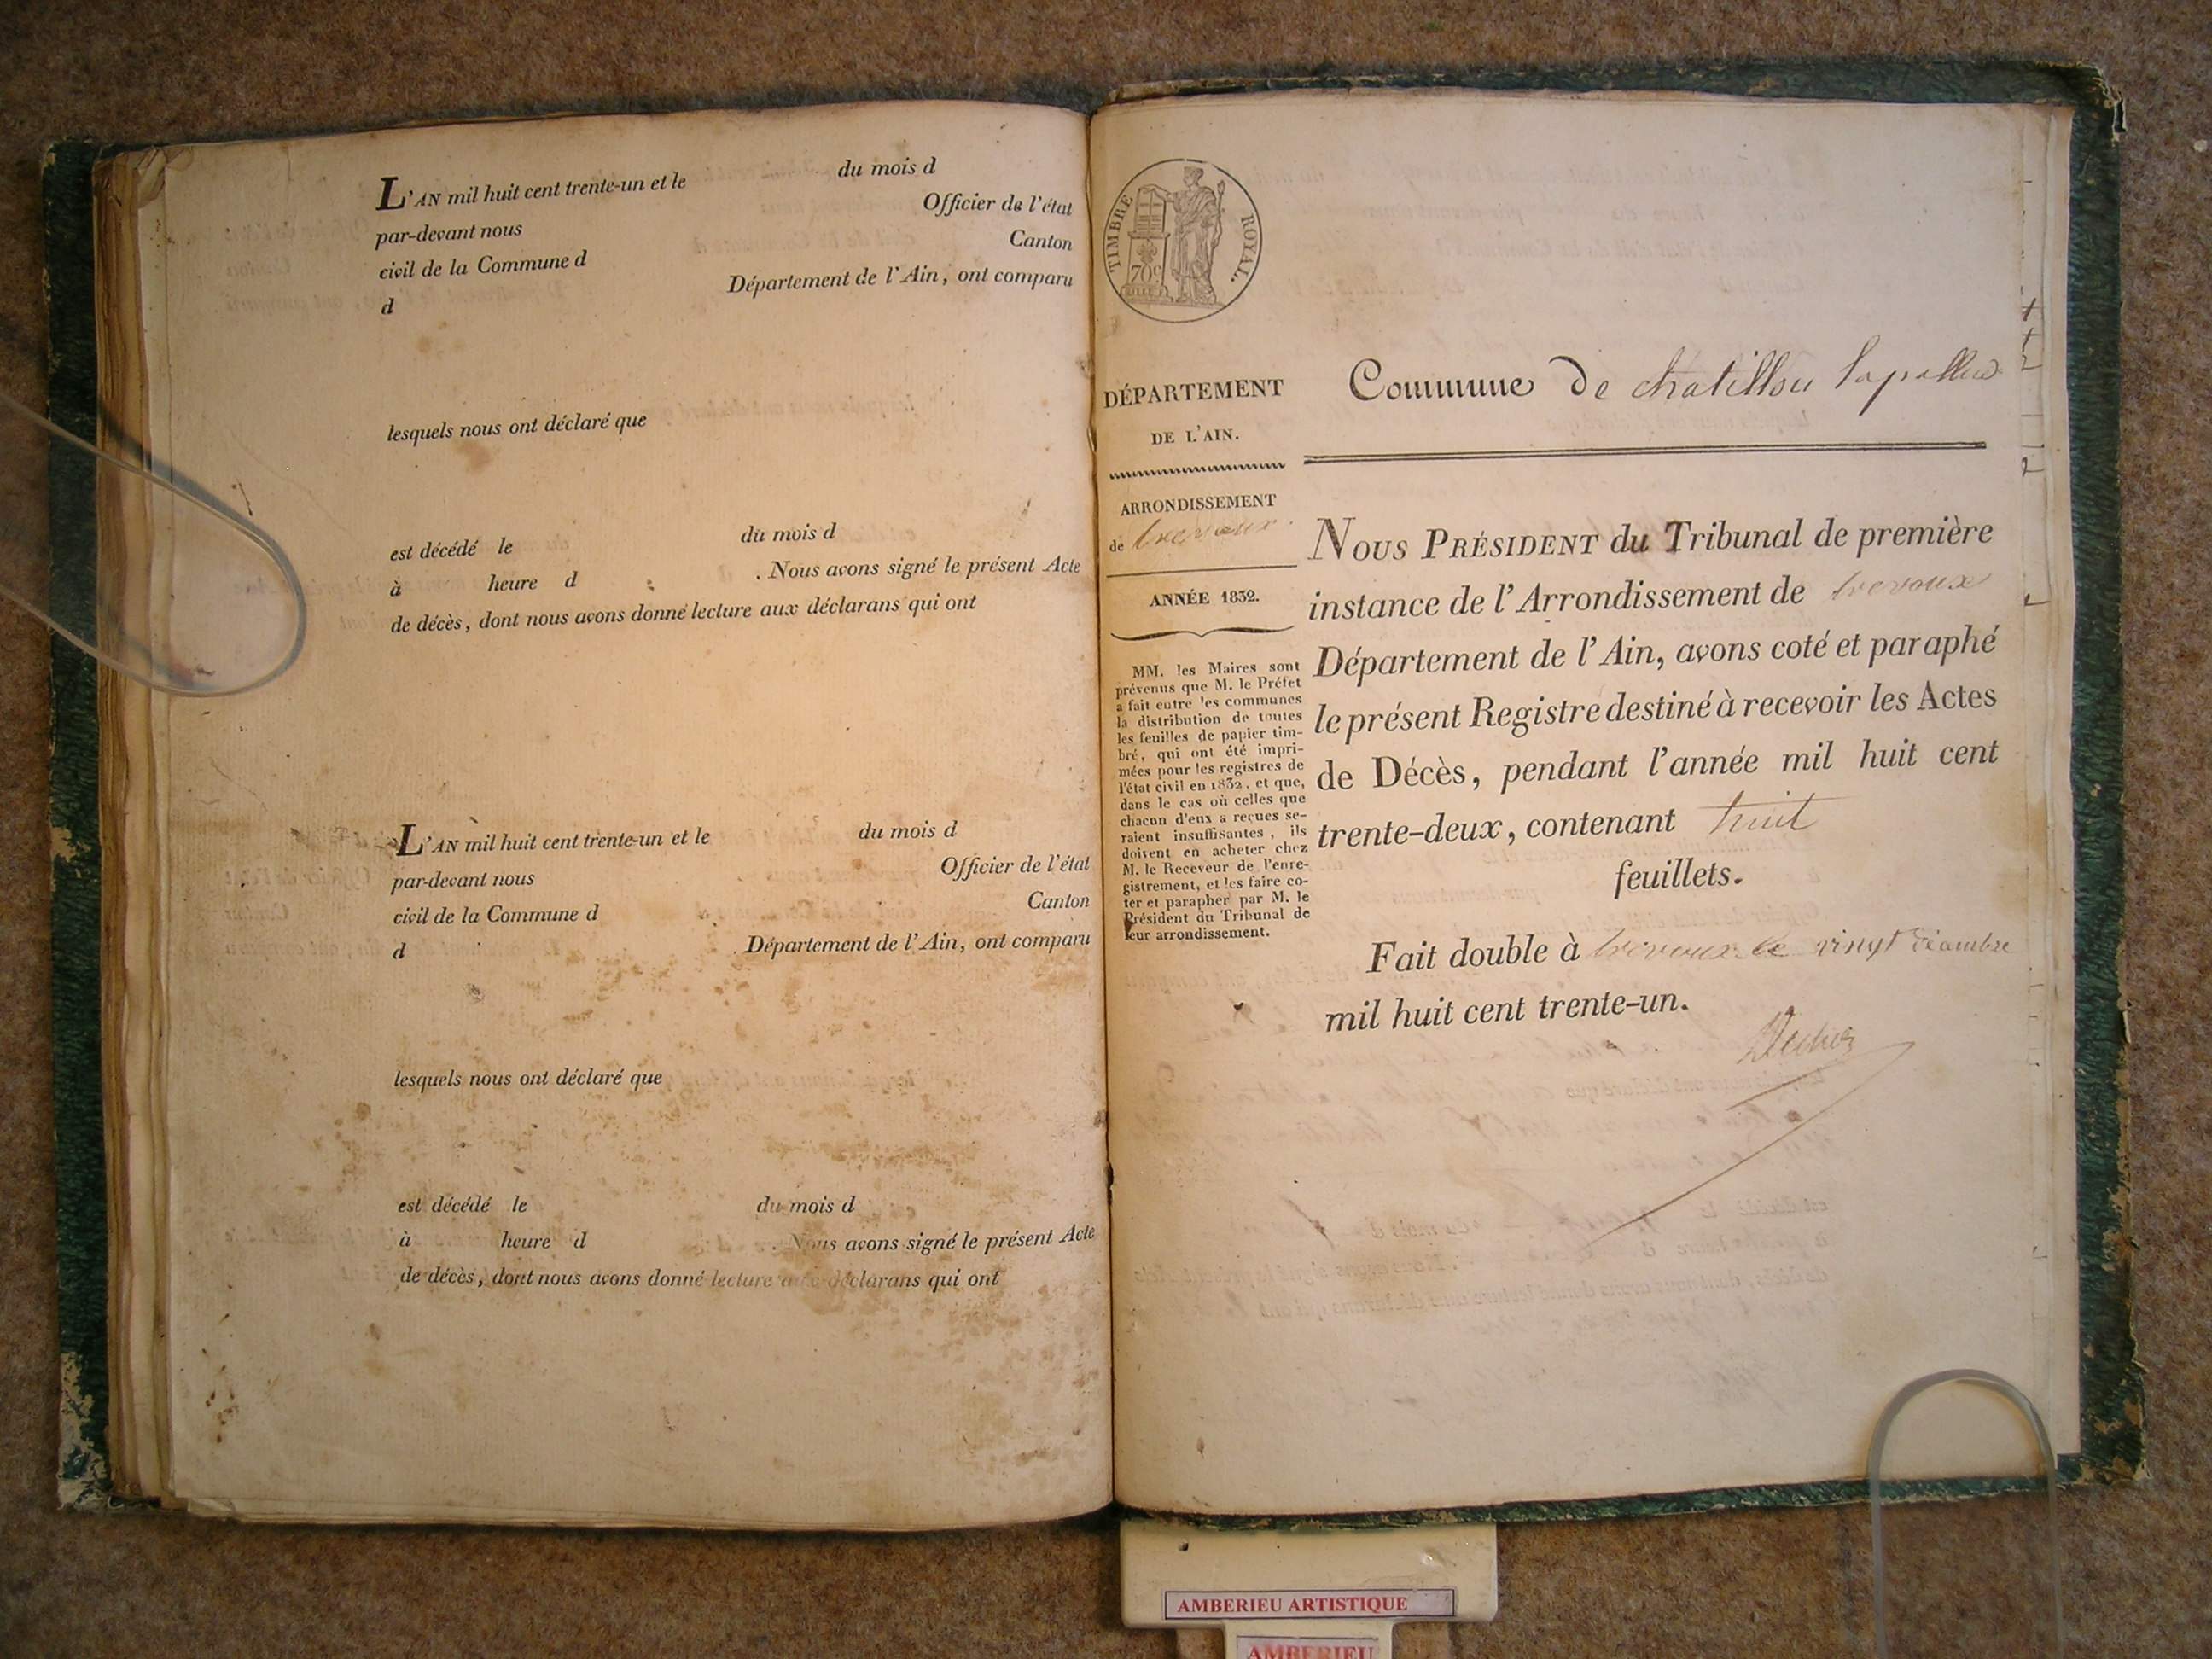 L'AN mil huit cent trente-un et le du mois d
par-devant nous Officier de l'état
civil de la Commune d Canton
d Département de l'Ain, ont comparu
lesquels nous ont déclaré que
est décédé le du mois d
à heure d . Nous avons signé le présent Acte
de décès, dont nous avons donné lecture aux déclarans qui ont
L'AN mil huit cent trente-un et le du mois d
par-devant nous Officier de l'état
civil de la Commune d Canton
d Département de l'Ain, ont comparu
lesquels nous ont déclaré que
est décédé le du mois d
à heure d . Nous avons signé le présent Acte
de décès, dont nous avons donné lecture aux déclarans qui ont
TIMBRE ROYAL.
70c
DÉPARTEMENT
DE L'AIN.
ARRONDISSEMENT
de trevoux
ANNÉE 1832.
MM. les Maires sont
prévenus que M. le Préfet
a fait entre les communes
la distribution de toutes
les feuilles de papier tim-
bré, qui ont été impri-
mées pour les registres de
l'état civil en 1832, et que,
dans le cas où celles que
chacun d'eux a reçues se-
raient insuffisantes, ils
doivent en acheter chez
M. le Receveur de l'enre-
gistrement, et les faire co-
ter et parapher par M. le
Président du Tribunal de
leur arrondissement.
Commune de chatillon lapallud
NOUS PRÉSIDENT du Tribunal de première
instance de l'Arrondissement de trevoux
Département de l'Ain, avons coté et paraphé
le présent Registre destiné à recevoir les Actes
de Décès, pendant l'année mil huit cent
trente-deux, contenant huit
feuillets.
Fait double à trevoux le vingt décembre
mil huit cent trente-un.
AMBERIEU ARTISTIQUE
AMBERIEU